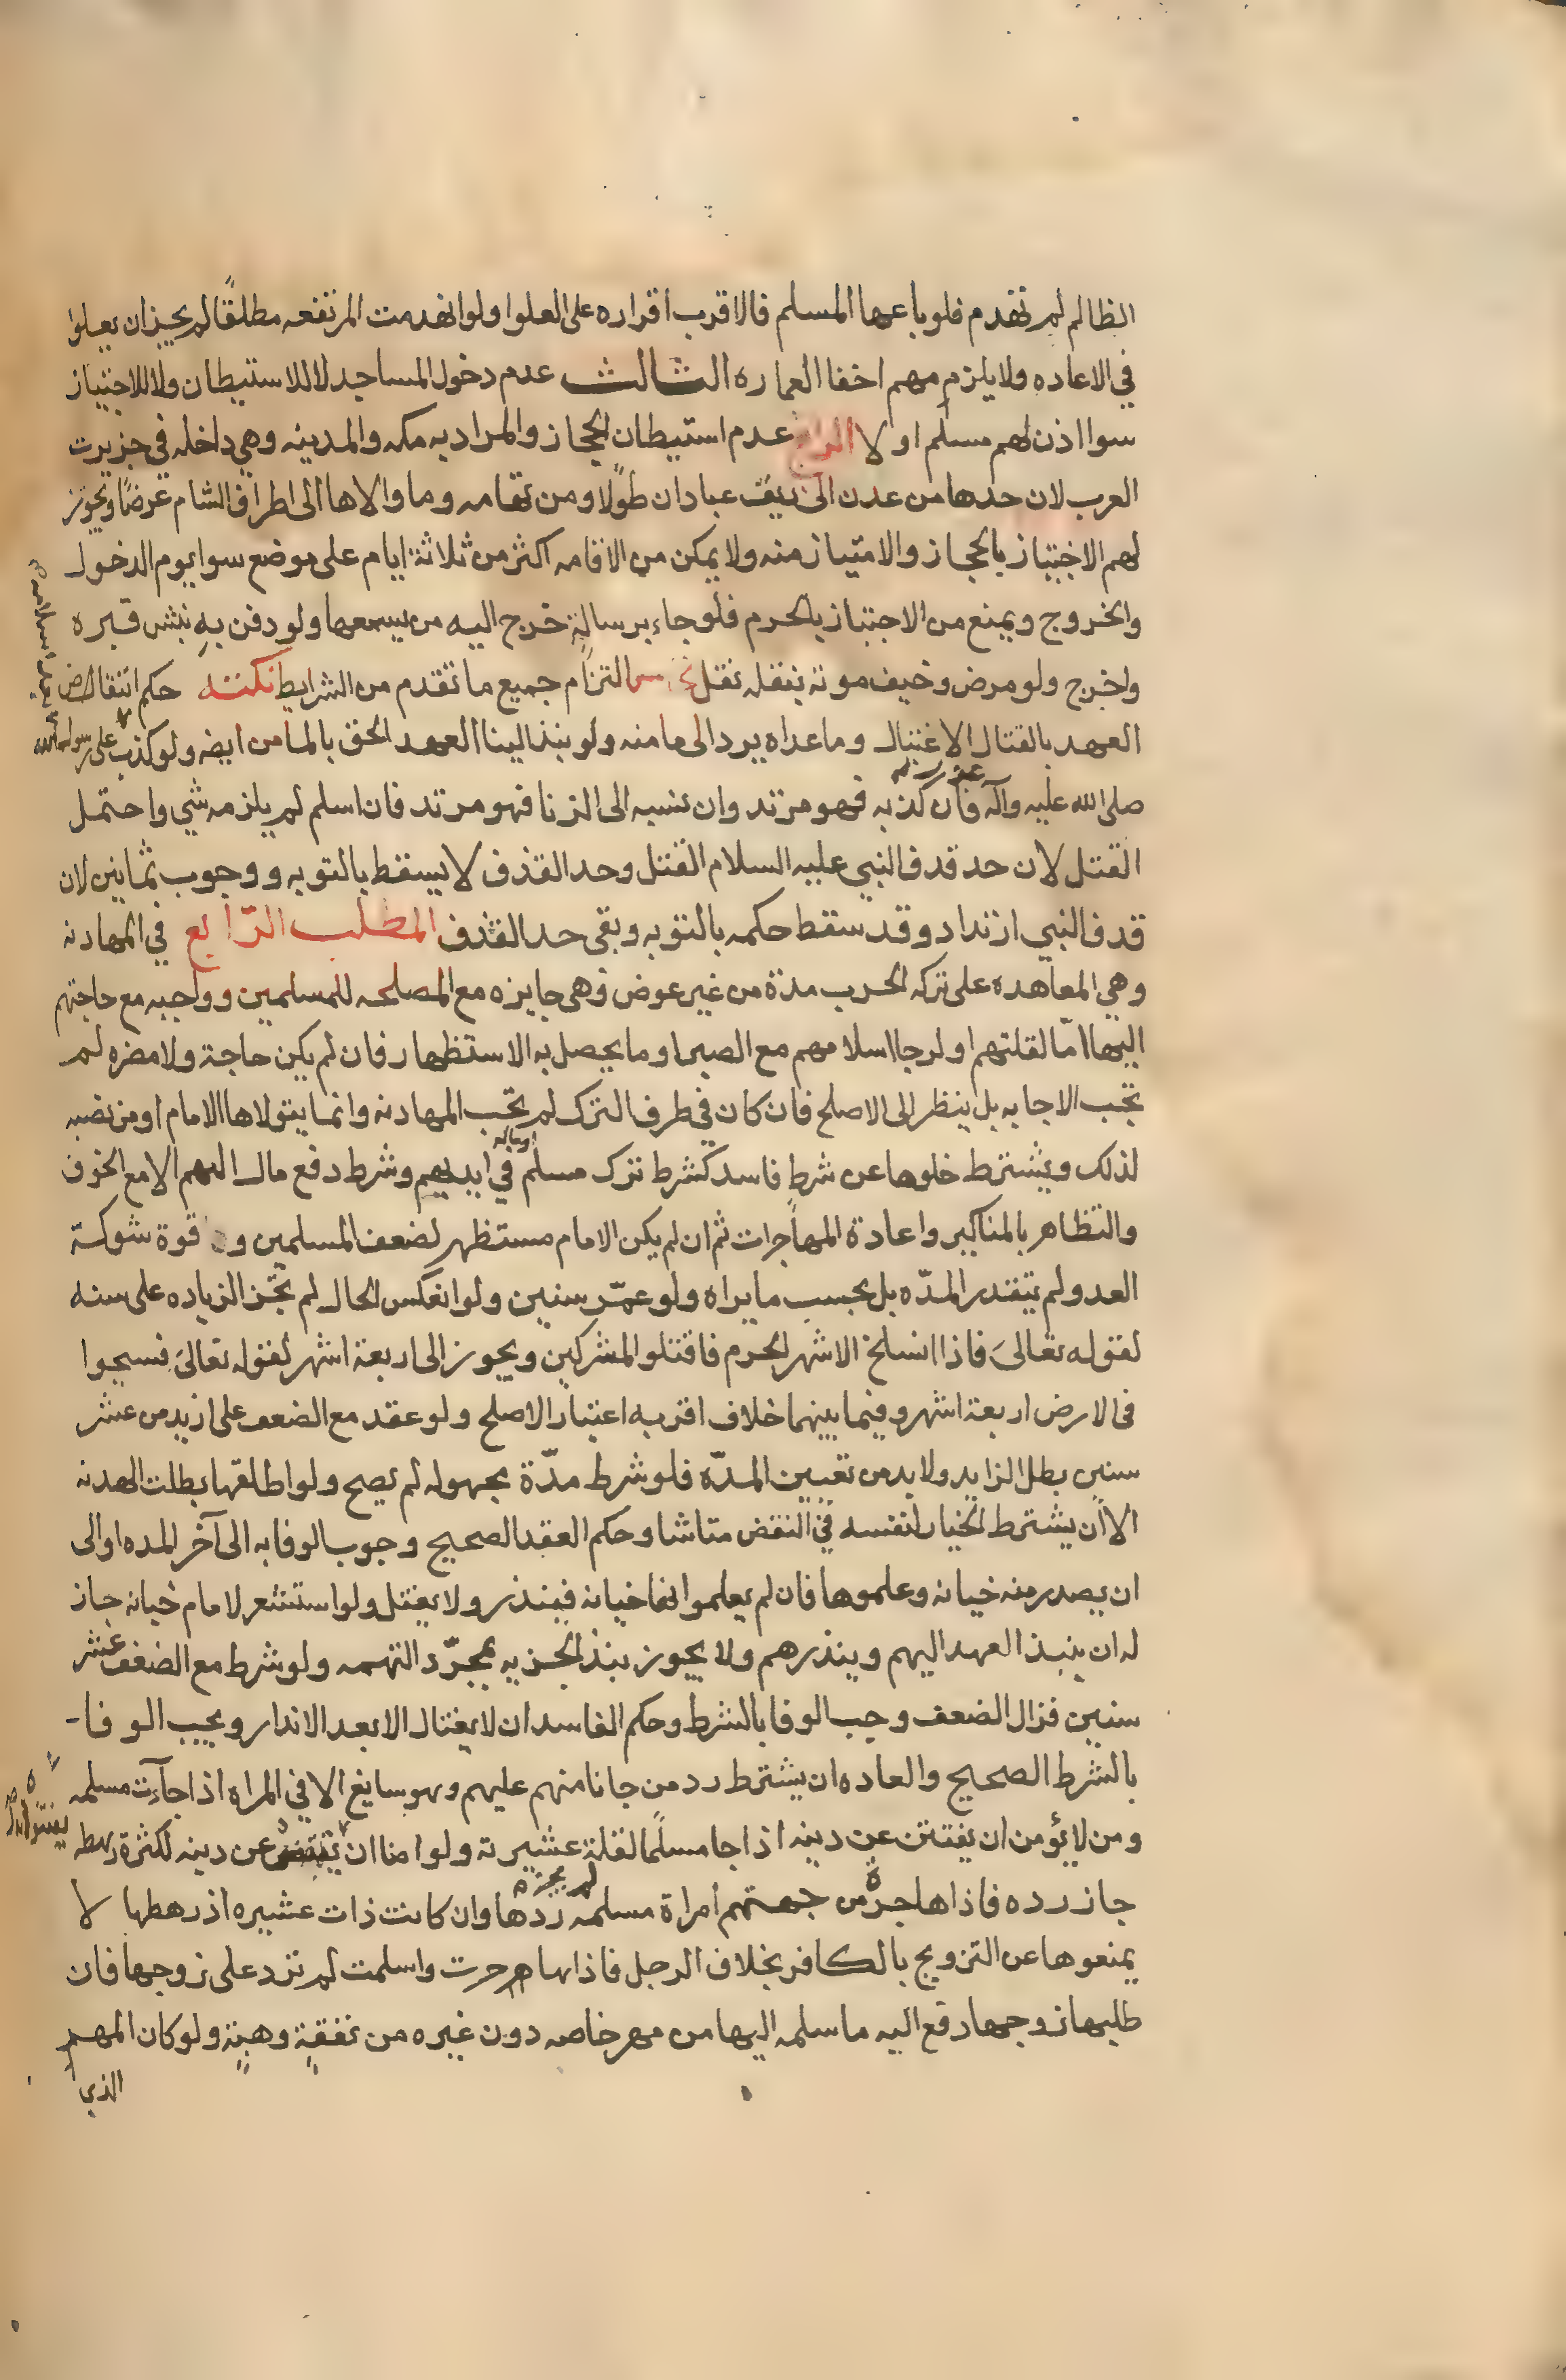 الظالم لم تهدم فلو باعها المسلم فالاقرب اقراره على العلوا ولو انهدمت المرتفعه مطلقًا لم يجز ان يعلوا
في الاعاده ولا يلزمهم اخفا العماره الثالث عدم دخول المساجد لا للاستيطان ولا للاجتياز
سوا اذن لهم مسلم او لا الرابع عدم استيطان الحجاز والمراد به مكه والمدينه وهي داخله في جزيرت
العرب لان حدها من عدن الى ريف عبادان طولًا ومن تهامه وما والاها الى اطراف الشام عرضًا ويجوز
لهم الاجتياز بالحجاز والامتياز منه ولا يمكن من الاقامه اكثر من ثلاثة ايام على موضع سوا يوم الدخول
والخروج ويمنع من الاجتياز بالحرم فلو جاء برسالة خرج اليه من يسمعها ولو دفن به نبش قبره
واخرج ولو مرض وخيف موته بنقله نقل التزام جميع ما تقدم من الشرايط نكتته حكم انتقاض
العهد بالقتال الاغتيال وما عداه يرد الى مامنه ولو نبذ الينا العهد الحق بالمامن ايضه ولو كذب على رسول الله
صلى الله عليه وآله فان كذبه فهو مرتد وان نسبه الى الزنا فهو مرتد فان اسلم لم يلزمه شي واحتمل
القتل لان حد قدف النبي عليه السلام القتل وحد القذف لا يسقط بالتوبه ووجوب ثمانين لان
قدف النبي ارتداد وقد سقط حكمه بالتوبه وبقى حد القذف المطلب الرّابع في المهادنه
وهي المعاهده على تركه الحرب مدة من غير عوض وهى جايزه مع المصلحه للمسلمين وواجبه مع حاجتهم
اليها امّا لقلتهم او لرجا اسلامهم مع الصبر او ما يحصل به الاستظهار فان لم يكن حاجة ولا مضره لم
تجب الاجابه بل ينظر الى الاصلح فان كان في طرف الترك لم تجب المهادنه وانما يتولاها الامام او من نصبه
لذلك ويشترط خلوها عن شرط فاسد كشرط ترك مسلم في ايديهم وشرط دفع مال اليهم الا مع الخوف
والتظاهر بالمناكير واعادة المهاجرات ثم ان لم يكن الامام مستظهر لضعف المسلمين و قوة شوكة
العدو لم تتقدر المدّه بل بحسب ما يراه ولو عشر سنين ولو انعكس الحال لم تجز الزياده على سنه
لقوله تعالىَ فاذا انسلخ الاشهر الحرم فاقتلوا المشركين ويجوز الى اربعة اشهر لقوله تعالىَ فسيحوا
فى الارض اربعة اشهر وفيما بينهما خلاف اقربه اعتبار الاصلح ولو عقد مع الضعف على ازيد من عشر
سنين بطل الزايد ولا بد من تعيين المدّه فلو شرط مدّة مجهوله لم يصح ولو اطلقها بطلت الهدنه
الا ان يشترط الخيار لنفسه في النقض متاشا وحكم العقد الصحيح وجوب الوفا به الى آخر المده او الى
ان يصدر منه خيانه وعلموها فان لم يعلموا انها خيانه فينذر ولا يقتل ولو استشعر لامام خيانه جاز
له ان ينبذ العهد اليهم وينذرهم ولا يجوز نبذ الجزيه بمجرّد التهمه ولو شرط مع الضعف عشر
سنين فزال الضعف وجب الوفا بالشرط وحكم الفاسد ان لا يغتال الا بعد الانذار ويجب الوفا
بالشرط الصحيح والعاده ان يشترط رد من جانا منهم عليهم وهو سايغ الا في المراه اذا جآءت مسلمه
ومن لا يؤمن ان يفتتن عن دينه اذا جا مسلمًا لقلة عشيرته ولو امنا ان عن دينه لكثرة رهطه
جاز رده فاذا هاجرة من جهتهم امراة مسلمه لم يجز ردها وان كانت ذات عشيره اذ رهطها لا
يمنعوها عن التزويج بالكافر بخلاف الرجل فاذا هاجرت واسلمت لم ترد على زوجها فان
طلبها زوجها دفع اليه ما سلمه اليها من مهر خاصه دون غيره من نفقةٍ وهبةٍ ولو كان المهر
الذي